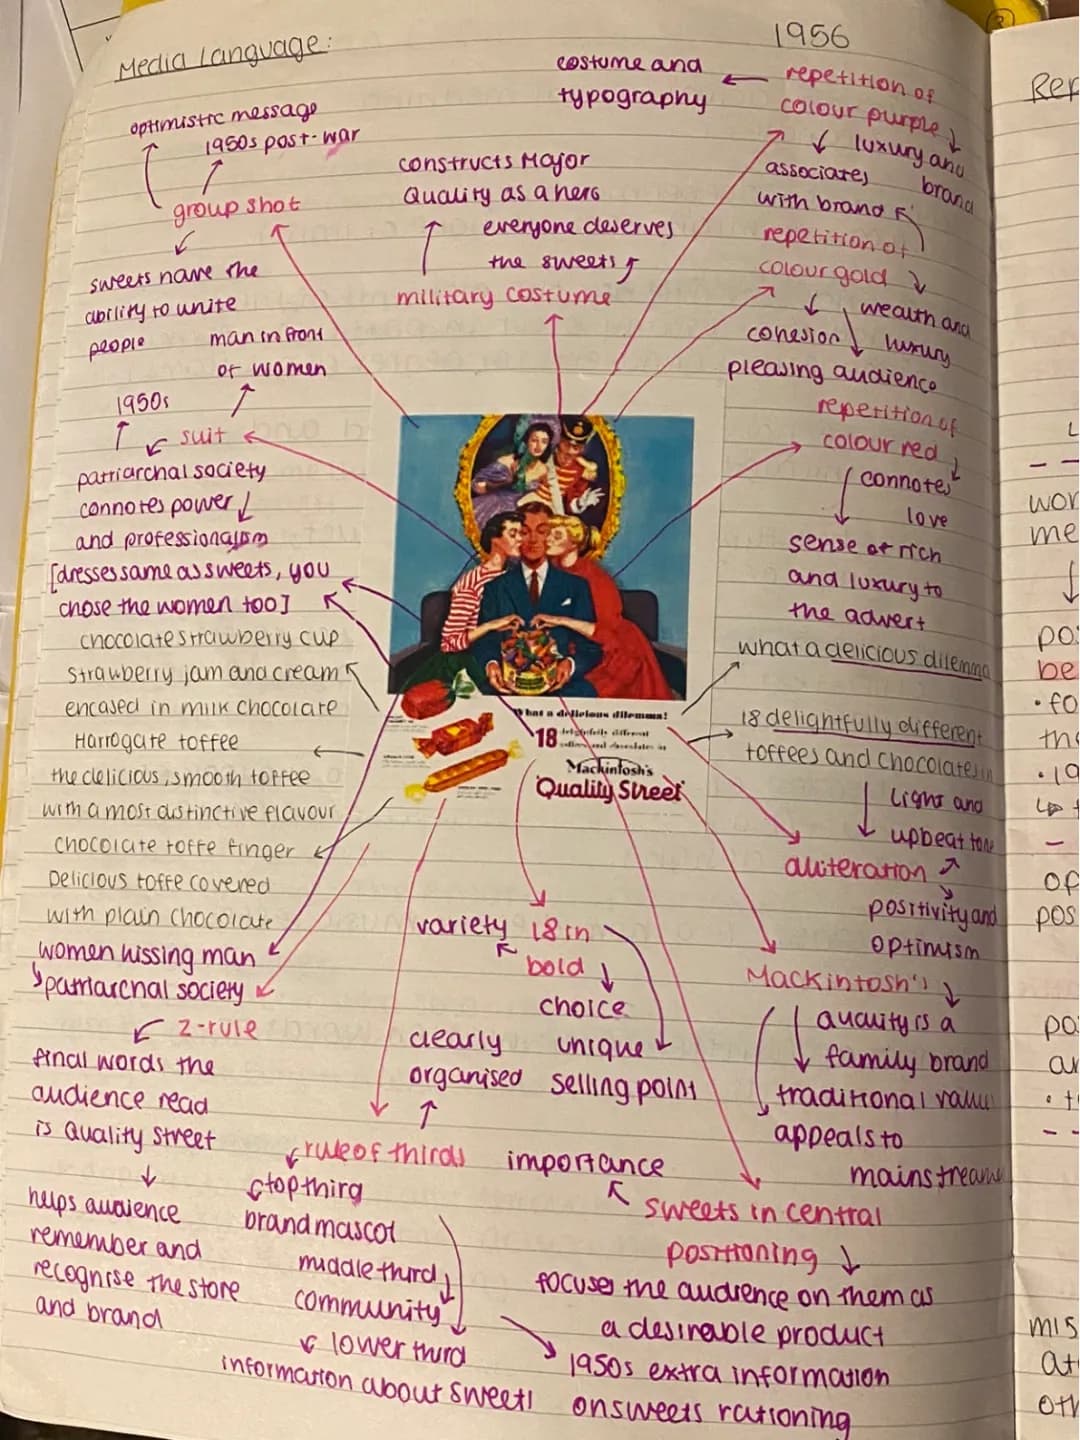 Media Language:
1956
costume and
typography
repetition of
colour purple
luxury and
brand
associates
with brand
repetition of
colour gold
wealth and
luxury
cohesion
pleasing audience
repetition of
colour red
connotes
love
sense of rich
and luxury to
the advert
optimistic message
1950s post-war
group shot
sweets have the
ability to unite
people
man in front
of women
constructs Major
Quality as a hero
everyone deserves
the sweets
military costume
1950s
suit
patriarchal society
connotes power
and professionalism
[dresses same as sweets, you
chose the women too]
chocolate strawberry cup
strawberry jam and cream
encased in milk chocolate
Harrogate toffee
the delicious, smooth toffee
with a most distinctive flavour
chocolate toffe finger
Delicious toffe covered
with plain chocolate
women kissing man
patriarchal society
z-rule
final words the
audience read
is Quality Street
helps audience
remember and
recognise the store
and brand
What a delicious dilemma!
18 delightfully different
toffees and chocolates in
Mackintosh's
Quality Street
what a delicious dilemma
18 delightfully different
toffees and chocolates in
light and
upbeat tone
aliteration
positivity and
optimism
Mackintosh's
quality is a
family brand
traditional value
appeals to
mainstream
variety
18 in
bold
choice
unique
selling point
clearly
organised
rule of thirds
top thirg
brand mascot
middle third
community
lower third
information about sweets
importance
sweets in central
positioning
focuses the audience on them as
a desirable product
1950s extra information
on sweets rationing
Rep
wor
me
po
be
• fo
th
• 19
op
pos
po
ar
• t
mis
at
oth